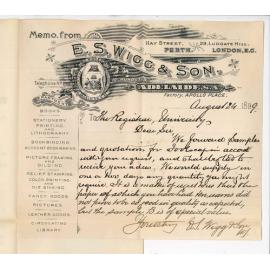 Memo. from
HAY STREET, PERTH.
29, LUDGATE HILL, LONDON, E.C.
E. S. WIGG & SON.
ADELAIDE, S.A.
Factory: APOLLO PLACE.
Telephone
August 24 1899
To The Registrar, University
Dear Sir
We forward samples
and quotations for Foolscap in accord
with your request, and shall be glad to
receive your orders. We could supply in
one or two days any quantity you might
require. It is a matter of
paper of which you had the
not prove to be so good in quality as expected,
but the sample B is of special value.
Yours truly E S Wigg & Son
BOOKS
STATIONERY
PRINTING
AND
LITHOGRAPHY
BOOKBINDING
ACCOUNT BOOK MAKING
PICTURE FRAMING
AND
GILDING
RELIEF STAMPING
COLOR PRINTING
AND
DIE SINKING
FANCY GOODS
PICTURES
LEATHER GOODS
CIRCULATING
LIBRARY